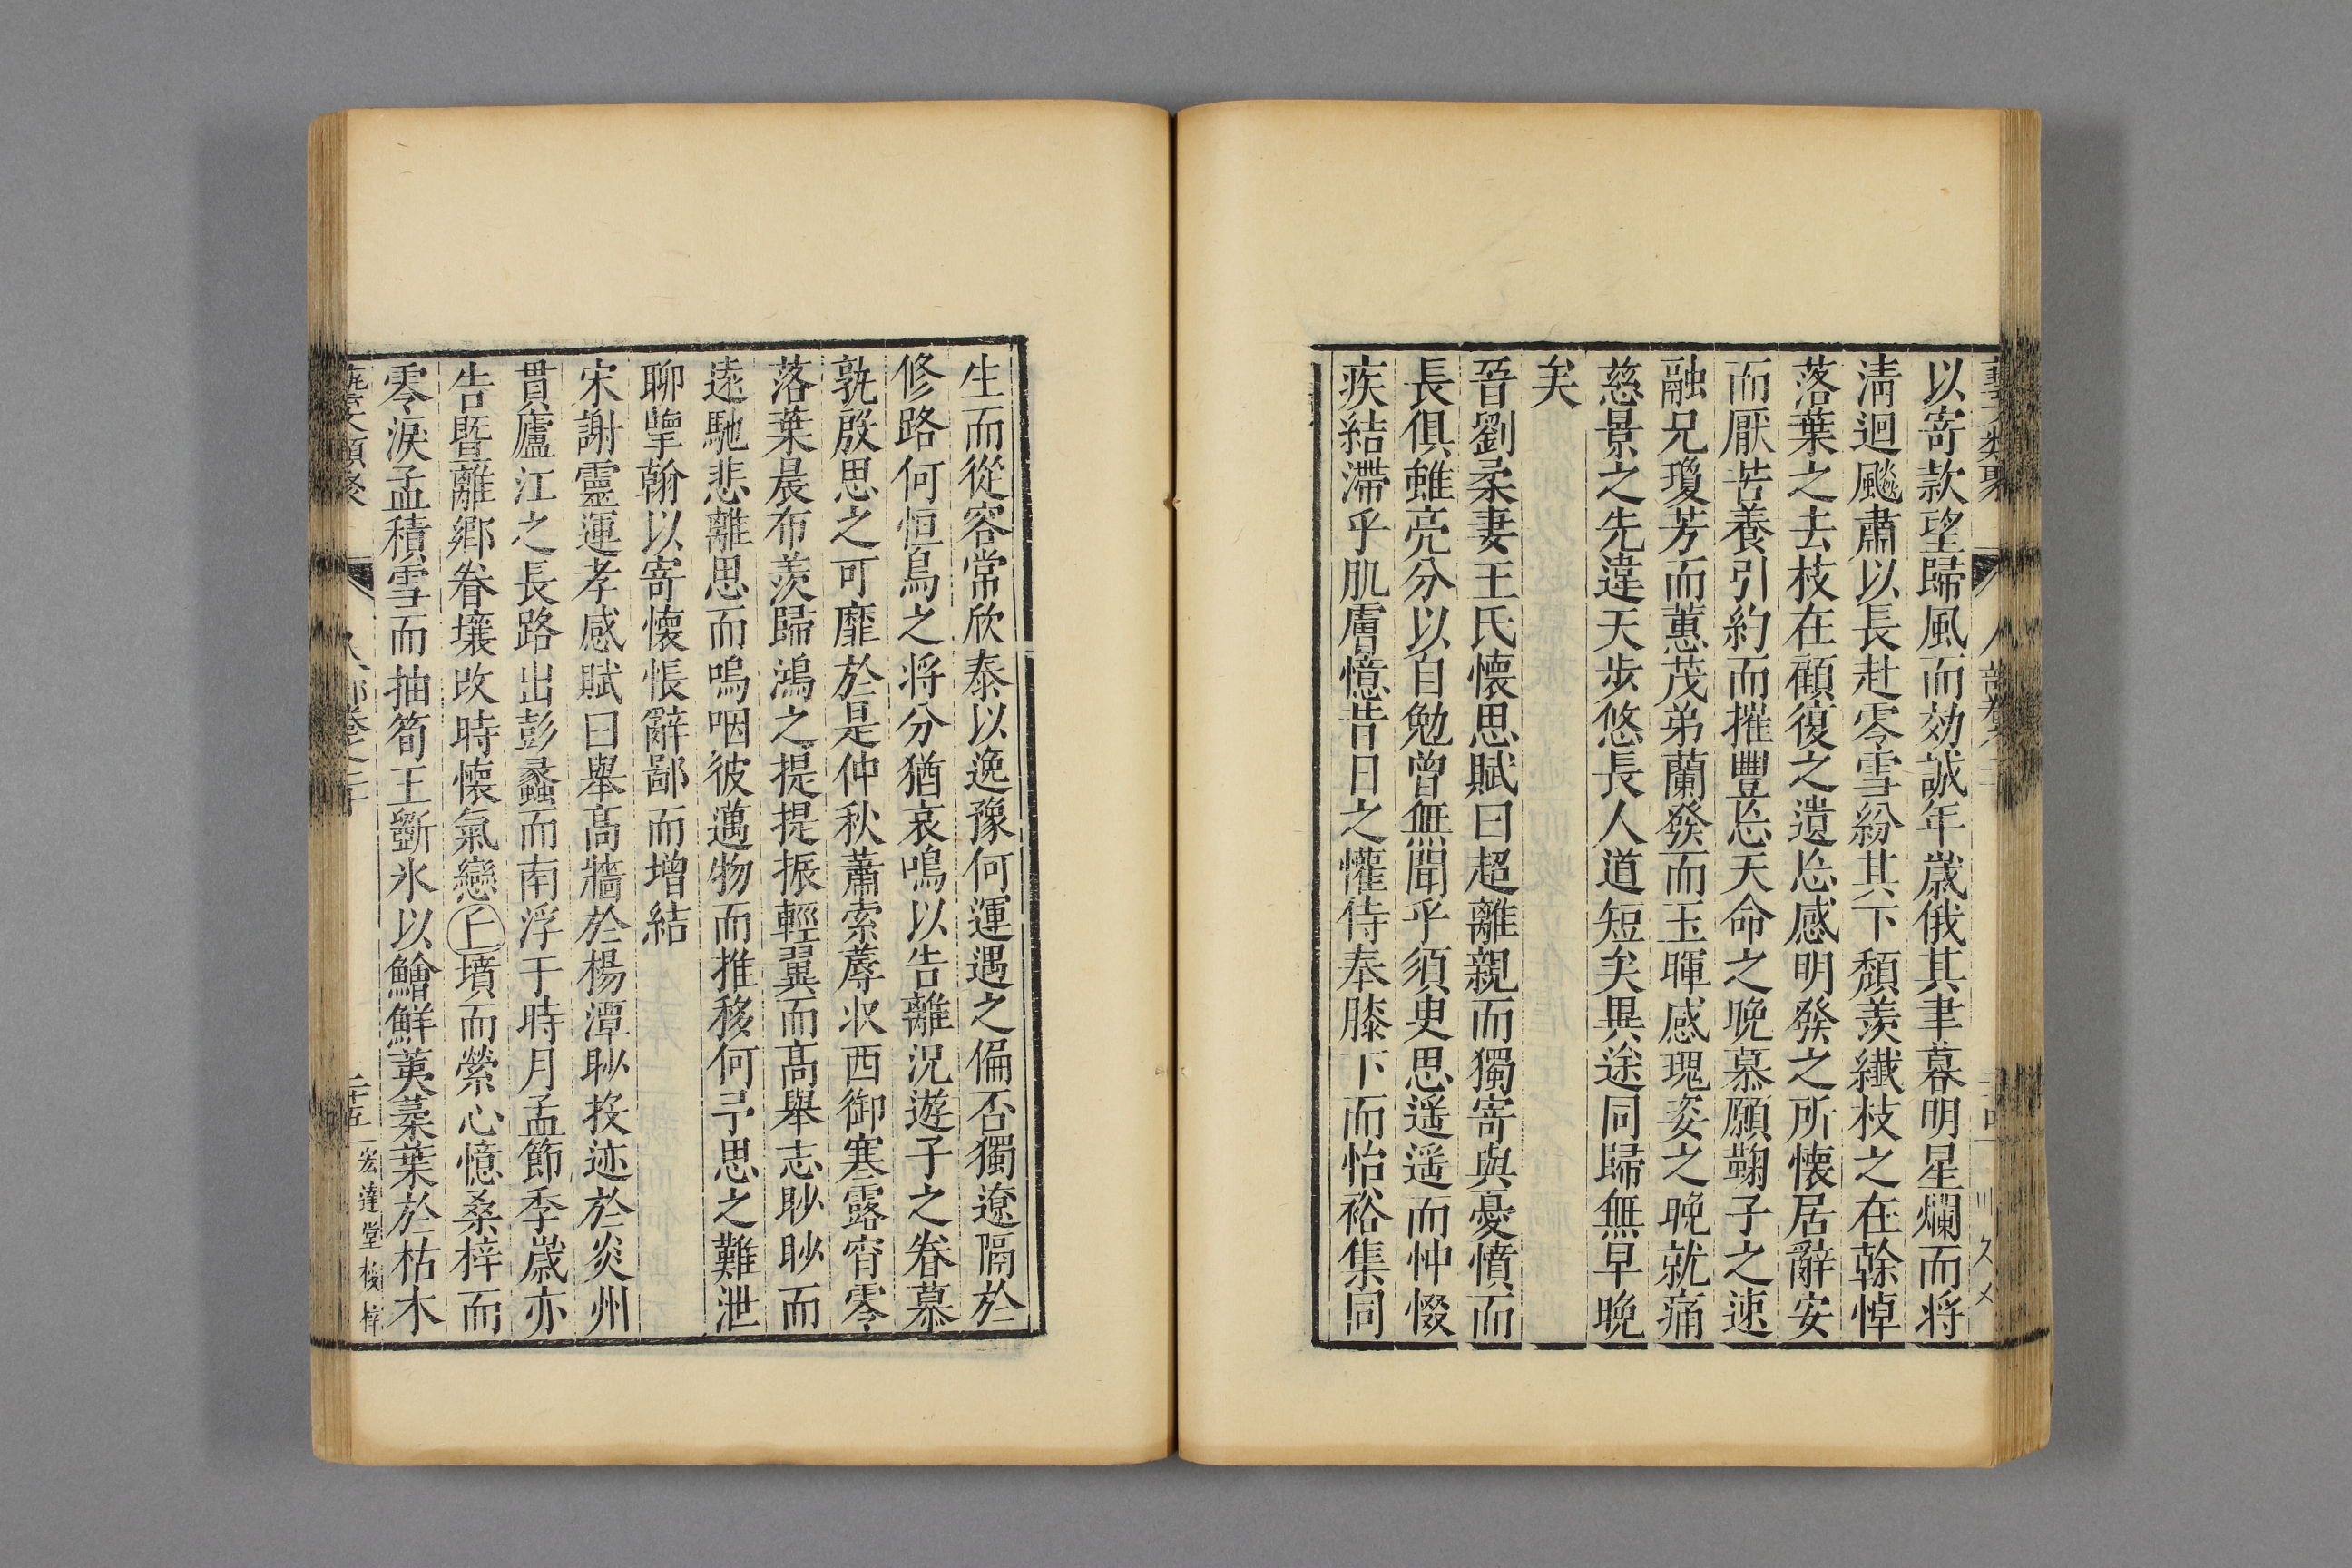 以寄款望歸風而効誠年歲俄其聿暮明星爛而将
淸迴飈肅以長赴零雪紛其下頹羡纎枝之在榦悼
落葉之去枝在顧復之遺恩感明發之所懷居辭安
而厭苦養引約而摧豐忩天命之晚慕願鞠子之速
融兄瓊芳而蕙茂弟蘭發而玉暉感瑰姿之晚就痛
慈景之先違天步悠長人道短矣異途同歸無早晚
矣
晉劉柔妻王氏懷思賦曰超離親而獨寄與憂憤而
長俱雖亮分以自勉曾無聞乎須臾思遥遥而忡惙
疾結滯乎肌膚憶昔日之懽侍奉膝下而怡裕集同
生而從容常欣泰以逸豫何運遇之偏否獨遼隔於
修路何恒鳥之将分猶哀鳴以告離况遊子之眷慕
孰殷思之可靡於是仲秋蕭索蓐収西御寒露宵零
落葉晨布羨歸鴻之提提振輕翼而高舉志眇眇而
遠馳悲離思而嗚咽彼邁物而推移何予思之難泄
聊擥翰以寄懷悵辭鄙而增結
宋謝靈運孝感賦曰舉高牆於楊潭眇投迹於炎州
貫廬江之長路出彭蠡而南浮于時月孟節季歲亦
告曁離鄉眷壤改時懷氣戀丘墳而縈心憶桑梓而
零淚孟積雪而抽筍王斵氷以鱠鮮荑柔葉於枯木
二十五 宏達堂校梓